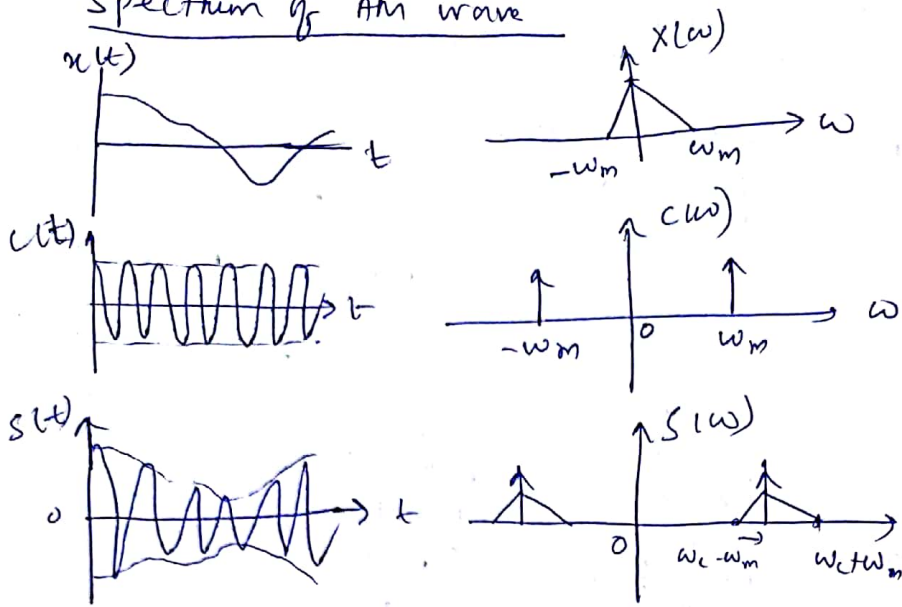 Spectrum of AM wave
x(t)
t
X(ω)
ω
-ωm
ωm
c(t)
t
C(ω)
ω
-ωm
0
ωm
S(t)
0
t
S(ω)
0
ωc-ωm
ωc+ωm